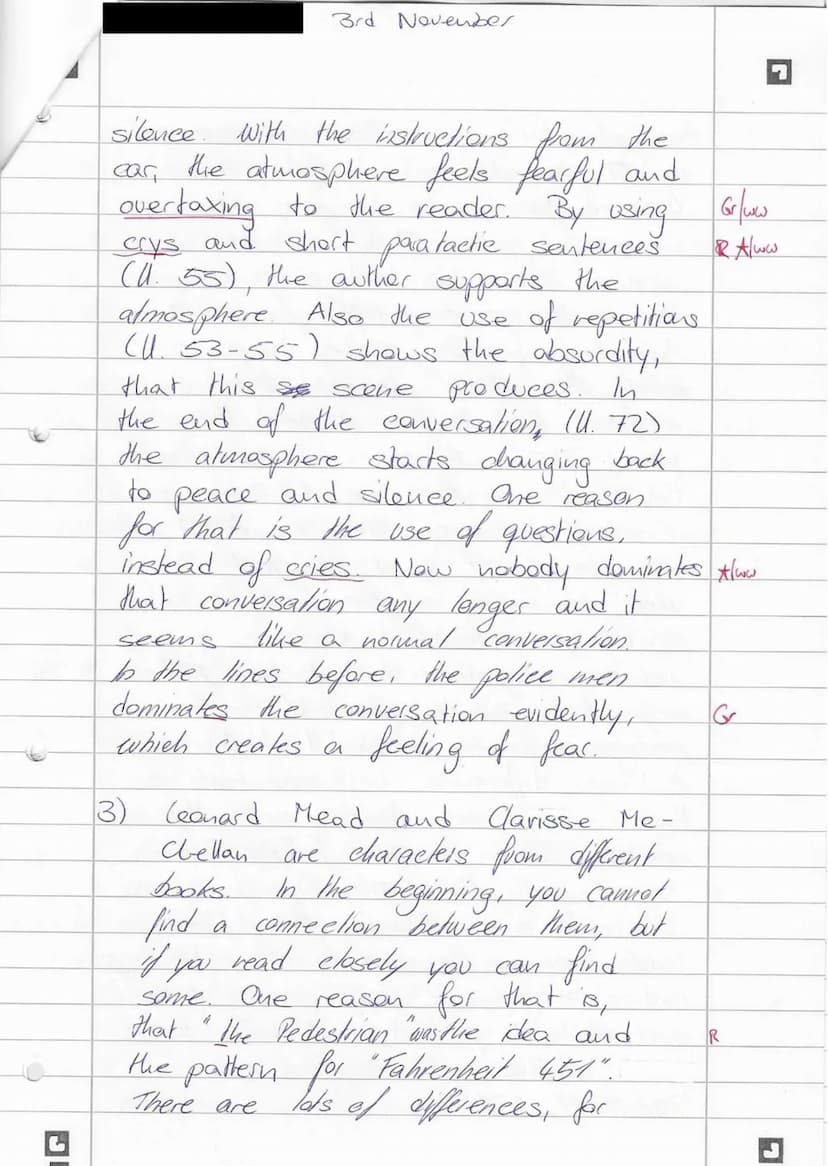 3rd November
silence. With the instructions from the
car, the atmosphere feels fearful and
overtaxing to the reader. By using
Gr/ww
crys and short paratactic sentences
R A/ww
(ll. 55), the auther supports the
atmosphere. Also the use of repetitions
(ll. 53-55) shows the absurdity,
that this scene produces. In
the end of the conversation, (ll. 72)
the atmosphere starts changing back
to peace and silence. One reason
for that is the use of questions,
instead of cries. Now nobody dominates
A/ww
that conversation any longer and it
seems like a normal conversation.
In the lines before, the police men
dominates the conversation evidently,
Gr
which creates a feeling of fear.
3) Leonard Mead and Clarisse Mc-
Clellan are characters from different
books. In the beginning, you cannot
find a connection between them, but
if you read closely you can find
some. One reason for that is,
that "the Pedestrian" was the idea and
R
the pattern for "Fahrenheit 451".
There are lots of differences, for